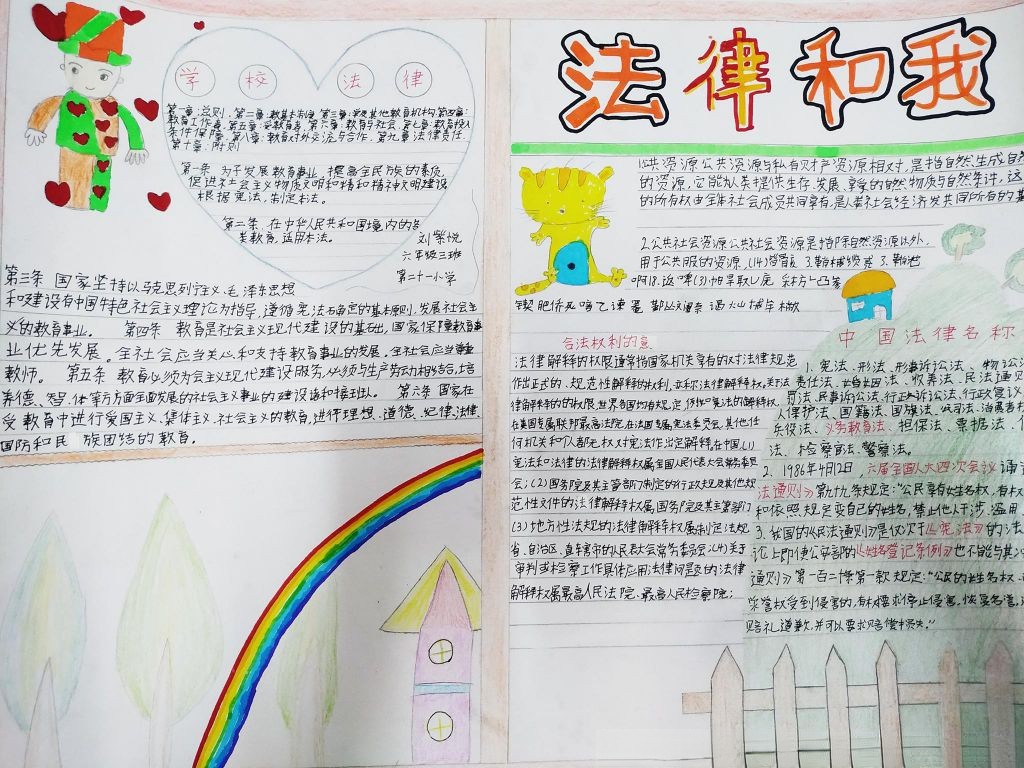 学校法律
第一章:总则 第二章:教育基本制度 第三章:学校及其他教育机构 第四章:
教育工作者 第五章:受教育者 第六章:教育与社会 第七章:教育投入
条件保障 第八章:教育对外交流与合作 第九章 法律责任
第十章:附则
第一条 为了发展教育事业,提高全民族的素质,
促进社会主义物质文明和精和精神文明建设
根据宪法,制定本法。
第二条 在中华人民共和国境内的各
类教育,适用本法。
刘紫悦
六年级三班
第二十一小学
第三条 国家坚持以马克思列宁主义、毛泽东思想
和建设有中国特色社会主义理论为指导,遵循宪法确定的基本原则,发展社会主
义的教育事业。 第四条 教育是社会主义现代建设的基础,国家保障教育事
业优先发展。全社会应当关心和支持教育事业的发展。全社会应当尊重
教师。 第五条 教育必须为会主义现代建设服务,必须与生产劳动相结合,培
养德、智、体等方面全面发展的社会主义事业的建设者和接班人。 第六条 国家在
受教育中进行爱国主义、集体主义、社会主义的教育,进行理想、道德、纪律、法律、
国防和民族团结的教育。
法律和我
1.公共资源公共资源与私有财产资源相对,是指自然生成自然
的资源,它能为人类提供生存、发展、享受的自然物质与自然条件,这
的所有权由全体社会成员共同享有,是人类社会经济发共同所有的基
2.公共社会资源公共社会资源是指除自然资源以外,
用于公共服的资源,
合法权利的意
法律解释的权限通常指国家机关享有的对法律规范
作出正式的、规范性解释的权利,立称法律解释权。关于法
律解释的的权限,世界各国均有规定,例如:宪法的解释权
在美国专属联邦最高法院,在法国专属宪法委员会,其他任
何机关和个人都无权对宪法作出定解释。在中国,(1)
宪法和法律的法律解释权属全国人民代表大会常务委员
会;(2)国务院及其主管部门制定的行政规及其他规
范性文件的法律解释权属国务院及其主管部门
(3)地方性法规的法律解释权属制定法规
省、自治区、直辖市的人民代表大会常务委员会;(4)关于
审判或检察工作具体应用法律问题的法律
解释权属最高人民法院、最高人民检察院;
中国法律名称
1.宪法、刑法、刑事诉讼法、物
责任法、婚姻法、收养法、民法通
法、民事诉讼法、行政诉讼法、行政复议
人保护法、国籍法、国旗法、
兵役法、义务教育法、担保法、票据法、
法、检察官法、警察法。
2.1986年4月2日,六届全国人大四次会议通
法通则》第九十九条规定:“公民享有姓名权,有权
和依照规定变自己的姓名,禁止他人干涉、滥用、
3.我国的《民法通则》是仅次于《宪法》的法
讼上即使公安部的《姓名登记条例》也不能与其冲
通则》第一百二十条第一款规定:“公民的姓名权、
荣誉权受到侵害的,有权要求停止侵害,恢复名誉,
赔礼道歉,并可以要求赔偿损失。”